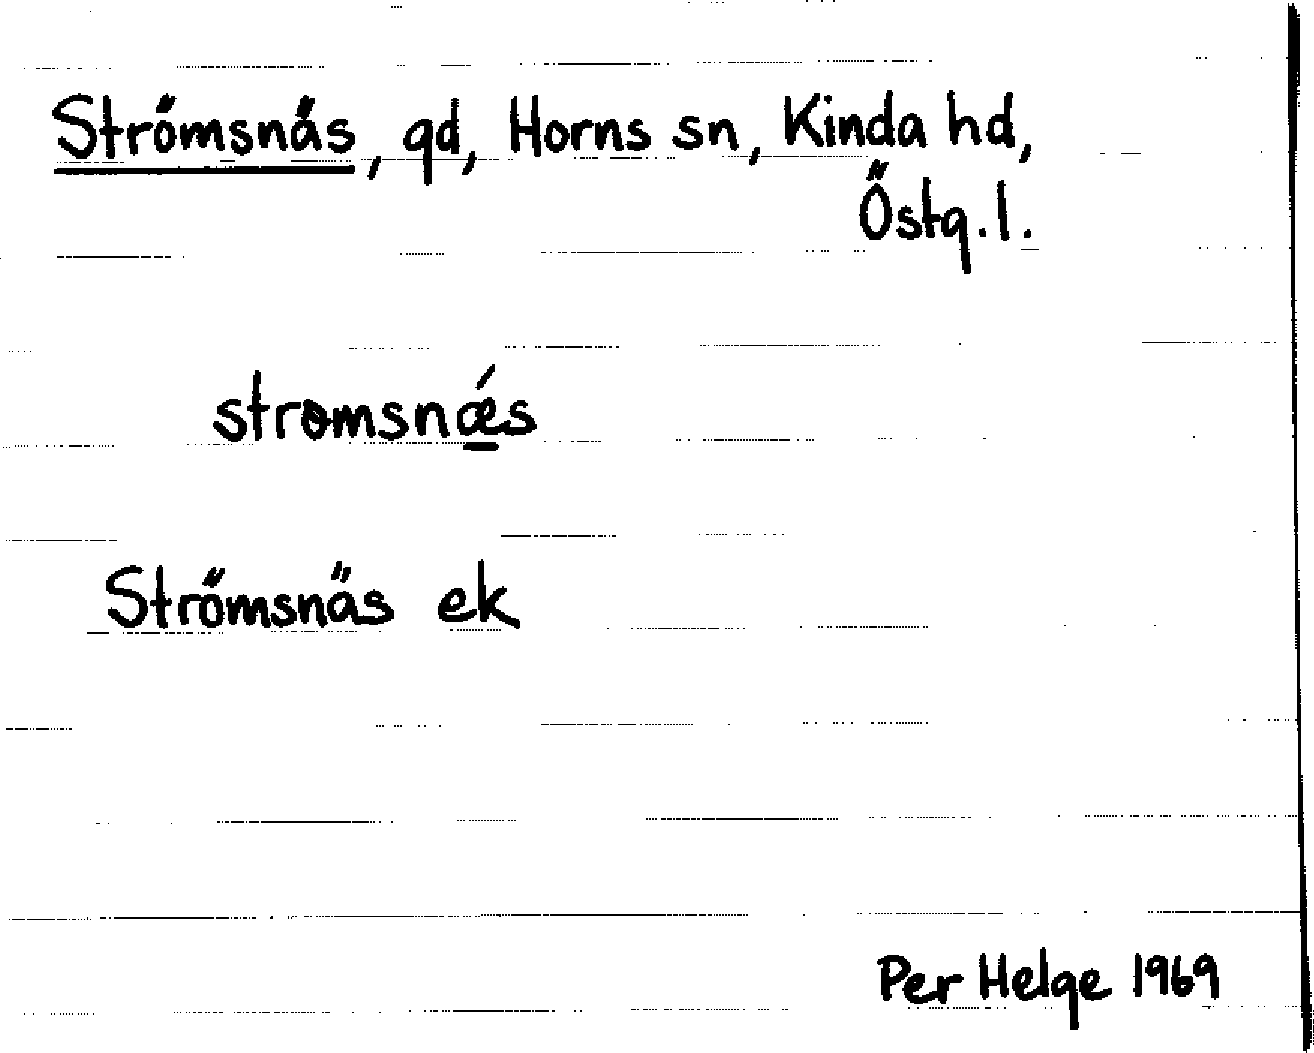 Strömsnäs, gd, Horns sn, Kinda hd,
Östg.l.
strɵmsnǽs
Strömsnäs ek
Per Helge 1969